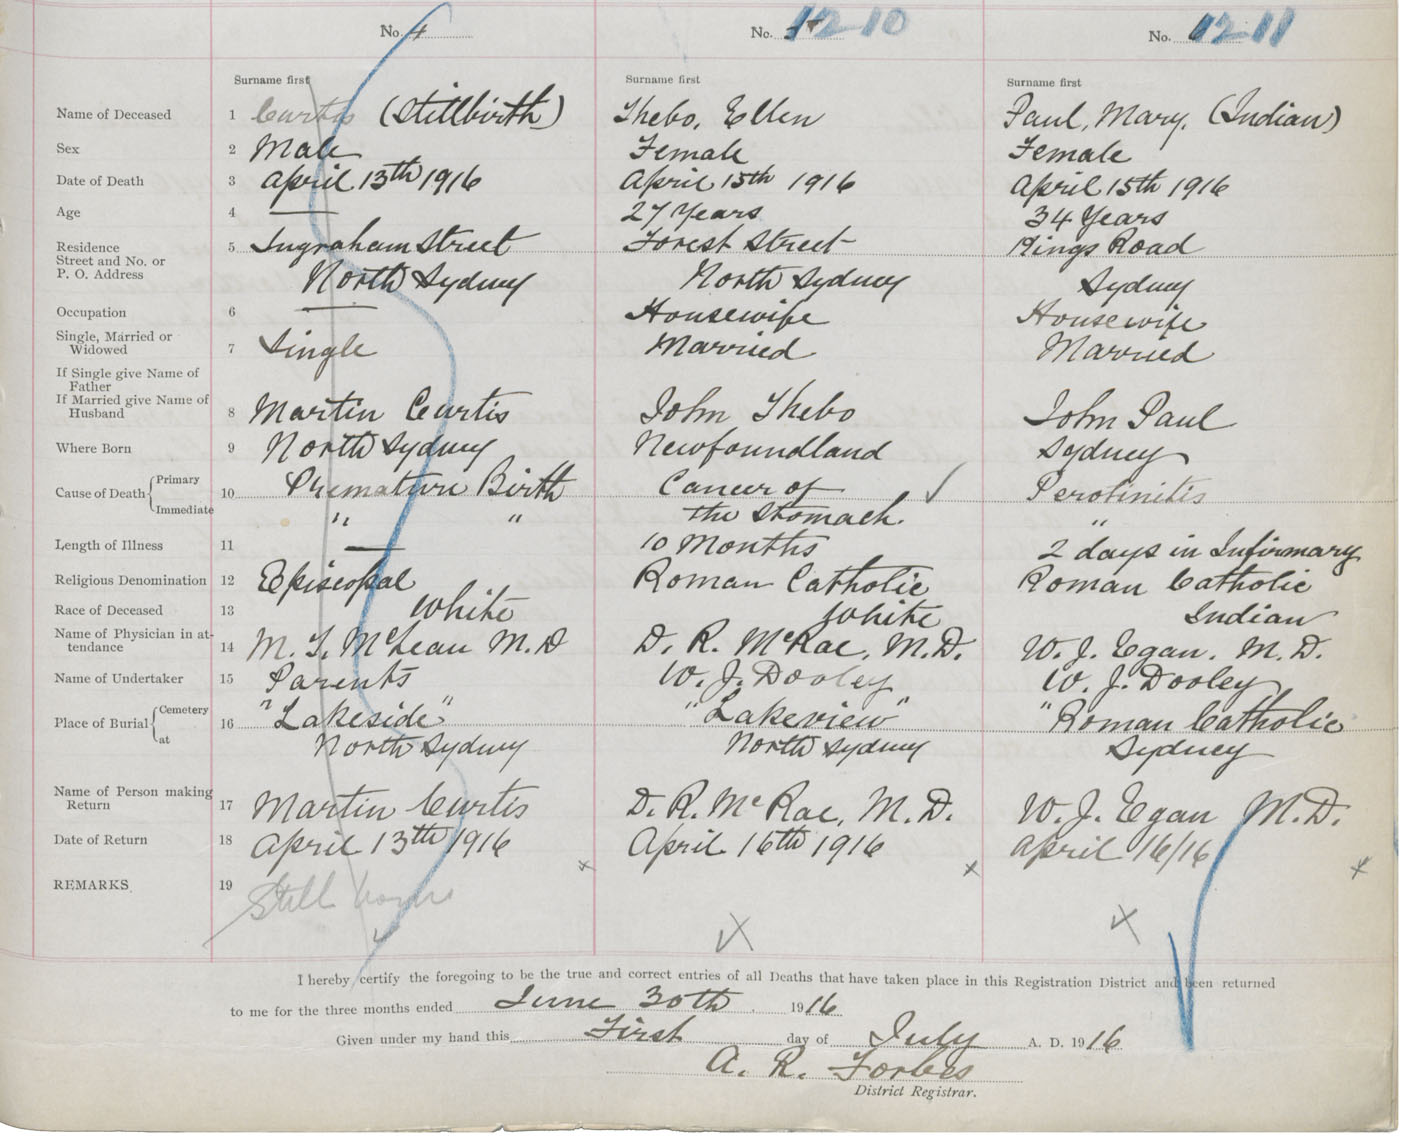 No. 4 No. 1210 No. 1211
Surname first Surname first Surname first
Name of Deceased 1 Curtis (Stillbirth) Thebo, Ellen Paul, Mary, (Indian)
Sex 2 Male Female Female
Date of Death 3 April 13th 1916 April 15th 1916 April 15th 1916
Age 4 — 27 Years 34 Years
Residence 5 Ingraham Street Forest Street Kings Road
Street and No. or
P. O. Address North Sydney North Sydney Sydney
Occupation 6 — Housewife Housewife
Single, Married or
Widowed 7 Single Married Married
If Single give Name of
Father
If Married give Name of
Husband 8 Martin Curtis John Thebo John Paul
Where Born 9 North Sydney Newfoundland Sydney
Cause of Death { Primary 10 Premature Birth Cancer of Perotinitis
Immediate " " the Stomach. "
Length of Illness 11 — 10 Months 2 days in Infirmary
Religious Denomination 12 Episcopal Roman Catholic Roman Catholic
Race of Deceased 13 White White Indian
Name of Physician in at-
tendance 14 M. T. McLean M.D D. R. McRae, M.D. W. J. Egan, M.D.
Name of Undertaker 15 Parents W. J. Dooley W. J. Dooley
Place of Burial { Cemetery 16 "Lakeside" "Lakeview" "Roman Catholic
at North Sydney North Sydney Sydney
Name of Person making
Return 17 Martin Curtis D. R. McRae, M.D. W. J. Egan M.D.
Date of Return 18 April 13th 1916 April 16th 1916 April 16/16
REMARKS 19 Still borns
I hereby certify the foregoing to be the true and correct entries of all Deaths that have taken place in this Registration District and been returned
to me for the three months ended June 30th . 1916
Given under my hand this First day of July A. D. 1916
A. R. Forbes
District Registrar.